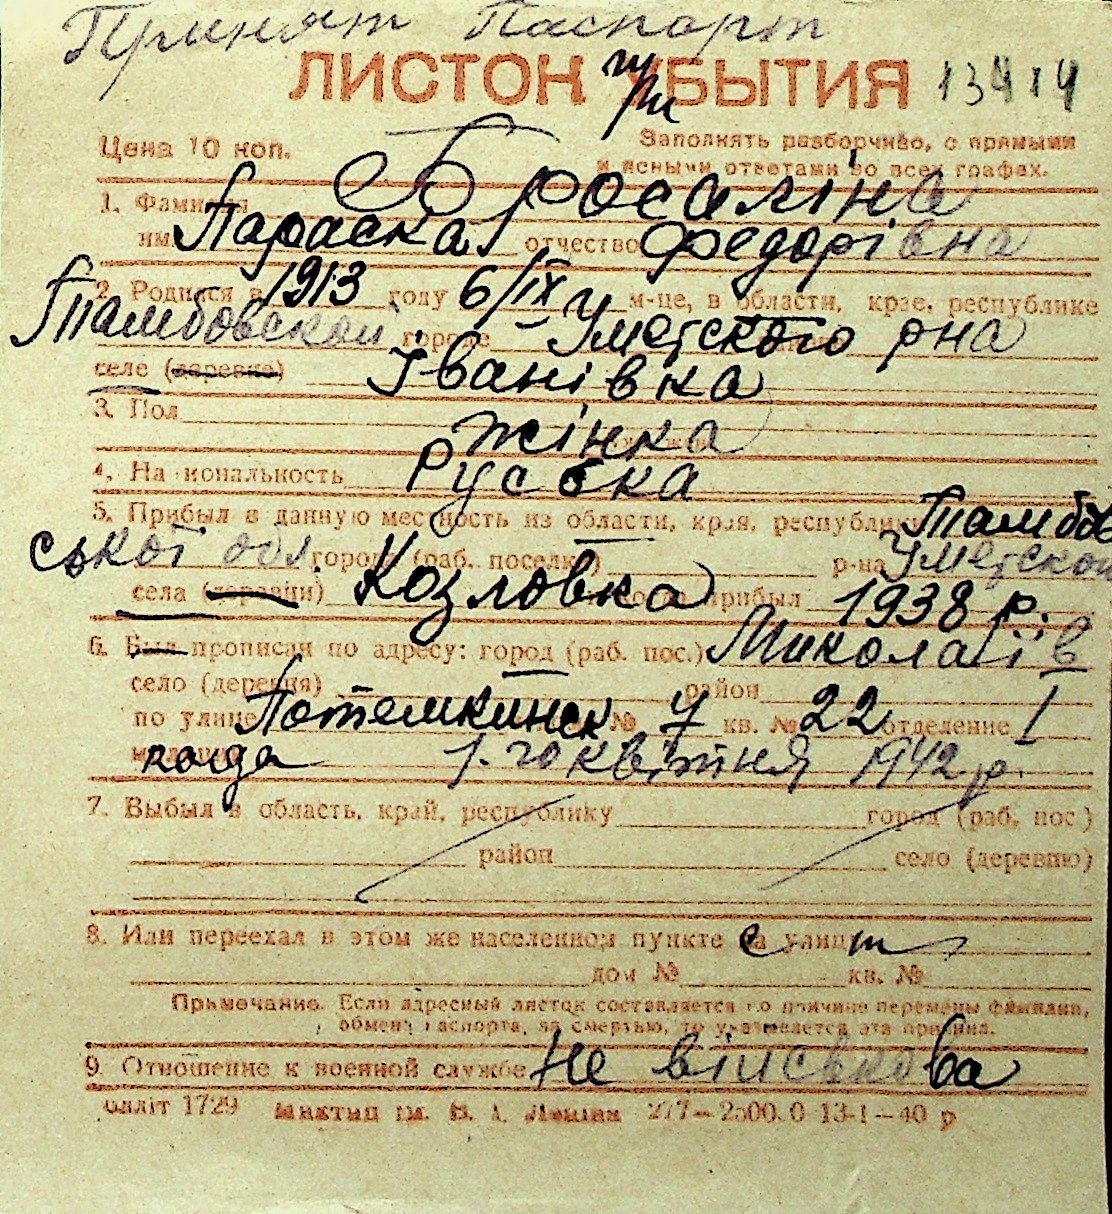 Принят Паспорт
ЛИСТОК при УБЫТИЯ 13414
Цена 10 коп. Заполнять разборчиво, с прямыми
и ясными ответами во всех графах.
1. Фамилия Бросаліна
имя Параска отчество Федорівна
2. Родился в 1913 году 6/IX м-це, в области, крае, республике
Тамбовской городе Уметского рна
селе (деревне) Іванівка
3. Пол
жінка
4. Национальность Руська
5. Прибыл в данную местность из области, края, республики Тамбов
ської обл. города (раб. поселка) р-на Уметской
села (деревни) Козловка прибыл 1938 р.
6. Был прописан по адресу: город (раб. пос.) Миколаїв
село (деревня) район
по улице Потемкинск № 7 кв. № 22 отделение I
когда 1-го квітня 1942 р.
7. Выбыл в область, край, республику город (раб. пос.)
район село (деревню)
8. Или переехал в этом же населенном пункте на улицу
дом № кв. №
Примечание. Если адресный листок составляется по причине перемены фамилии,
обмена паспорта, за смертью, то указывается эта причина.
9. Отношение к военной службе Не військова
Облліт 1729 277–2500.0 13-1–40 р